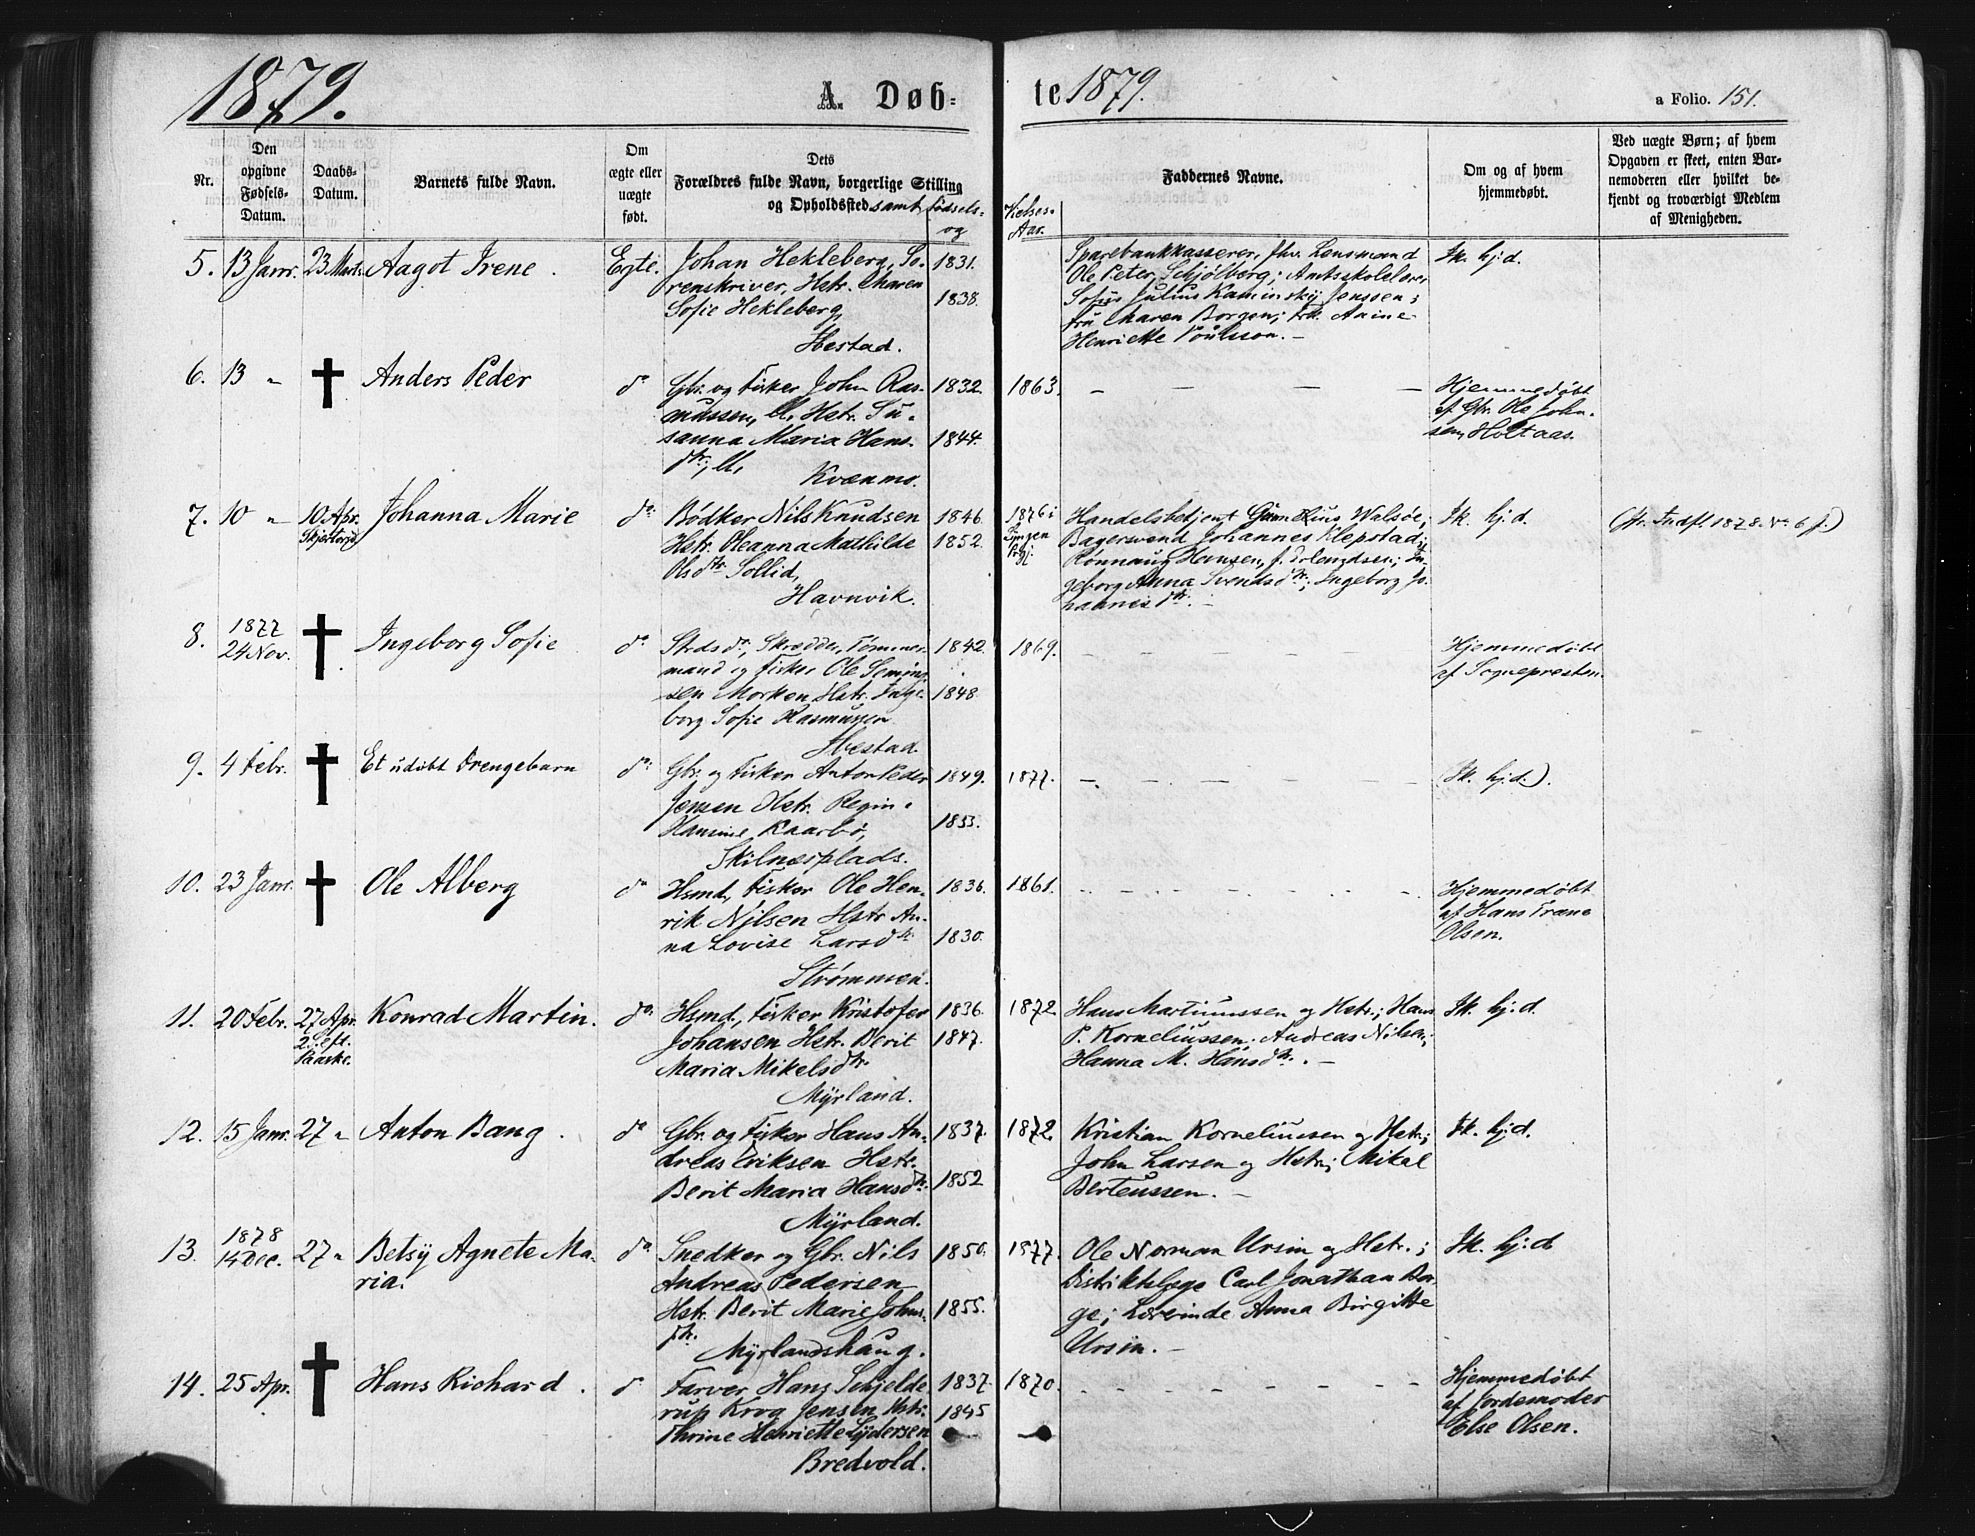 1879.
A. Døb=
te 1879.
a Folio. 151.
Nr.
Den
opgivne
Fødsels-
Datum.
Daabs-
Datum.
Barnets fulde Navn.
Om
ægte eller
uægte
født.
Dets
Forældres fulde Navn, borgerlige Stilling
og Opholdssted samt fødsels-
og
Vielses-
Aar.
Faddernes Navne.
Om og af hvem
hjemmedøbt.
Ved uægte Børn; af hvem
Opgaven er skeet, enten Bar-
nemoderen eller hvilket be-
kjendt og troværdigt Medlem
af Menigheden.
5. 13 Janr. 23 Marts Aagot Irene. Egte.
Johan Hekleberg, So-
renskriver, Hstr. Maren
Sofie Hekleberg,
Ibestad.
1831.
1838.
Sparebankkasserer, fhv. Lensmand
Ole Peter Schjølberg; Amtsskolelærer
Sofus Julius Kaminsky Jenssen;
Fru Maren Borgen; frk. Anine
Henriette Poulsson. -
Ik. hj.d.
6. 13 " † Anders Peder do
Gbr. og Fisker John Ras-
mussen, M. Hstr. Su-
sanna Maria Hans-
dtr., M.
Kvænmo.
1832.
1844.
1863.
Hjemmedøbt
af Gbr. Ole John-
sen, Holtaas.
7. 10 " 10 Apr.
Skjertorsd.
Johanna Marie do.
Bødker Nils Knudsen
Hstr. Oleanna Mathilde
Olsdtr. Sollid,
Havnvik.
1846.
1852.
1876 i
Lyngen
Prgj.
Handelsbetjent Walsøe;
Bagersvend Johannes Klepstad;
Rønnaug Hansen, f. Erlendsen; In-
geborg Anna Svendsdtr.; Ingeborg Jo-
hannesdtr. -
Ik. hj.d.
(fr. Indfl. 1878 No 6 f.)
8. 1877
24 Nov. † Ingeborg Sofie do
Skrædder, Tømmer-
mand og Fisker Ole Simon-
sen Morken Hstr. Inge-
borg Sofie Rasmussen
Ibestad.
1842.
1848.
1869.
Hjemmedøbt
af Sognepresten.
9. 4 Febr. † Et udøbt Drengebarn do.
Gbr. og Fisker Anton Peder
Jensen Hstr. Regine
Hansine Kaarbø,
Skilnesplads.
1849.
1853.
1877.
(Ik. hj.d.).
10. 23 Janr. † Ole Alberg do
Hsmd., Fisker Ole Hen-
rik Nilsen Hstr. An-
na Lovise Larsdtr.
Strømmen.
1836.
1830.
1861.
Hjemmedøbt
af Hans Træne
Olsen.
11. 20 Febr. 27 Apr.
2 S. eft.
Paaske.
Konrad Martin. do.
Hsmd., Fisker Kristofer
Johansen Hstr. Berit
Maria Mikelsdtr.
Myrland.
1836.
1847.
1872.
Hans Martinussen og Hstr.; Hans
P. Korneliussen; Andreas Nilsen;
Hanna M. Hansdtr. -
Ik. hj.d.
12. 15 Janr. 27 " Anton Bang. do
Gbr. og Fisker Hans An-
dreas Eriksen Hstr.
Berit Maria Hansdtr.
Myrland.
1837.
1852
1872.
Kristian Korneliussen og Hstr.;
John Larsen og Hstr.; Mikal
Berteussen. -
Ik. hj.d.
13. 1878
14 Dec. 27 " Betsy Agnete Ma-
ria. do.
Snedker og Gbr. Nils
Andreas Pedersen
Hstr. Berit Marie Johns-
dtr.
Myrlandshaug.
1850.
1855.
1877.
Ole Norman Ursin og Hstr.;
Distriktslæge Carl Jonathan Bor-
ge; Lærerinde Anna Birgitte
Ursin. -
Ik. hj.d.
14. 25 Apr. † Hans Richard. do
Farver, Hans Schjelde-
rup Krog Jensen Hstr.
Thrine Henriette Lydersen
Bredvold.
1837.
1845
1870.
Hjemmedøbt
af Jordemoder
Else Olsen.